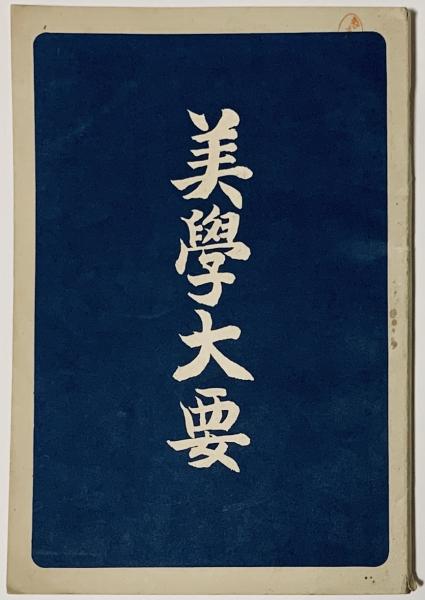 美學大要